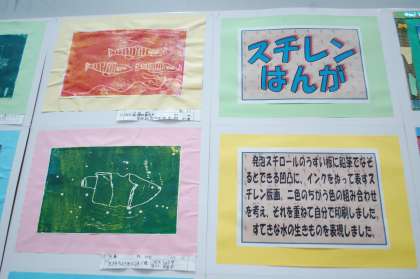 スチレン
はんが
発泡スチロールのうすい板に鉛筆でなぞ
るとできる凹凸に、インクをぬって表すス
チレン版画。二色のちがう色の組み合わせ
を考え、それを重ねて自分で印刷しました。
すてきな水の生きものを表現しました。